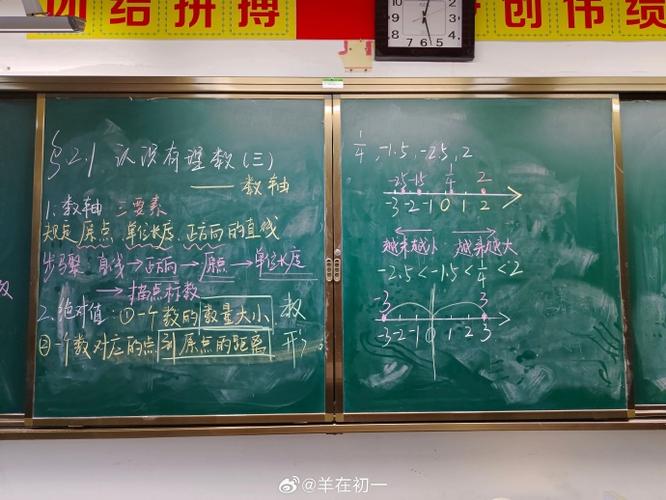 团结拼搏
创伟绩
§2.1 认识有理数(三)
——数轴
1、数轴 三要素
规定原点、单位长度、正方向的直线
步骤: 直线→正方向→原点→单位长度
→描点标数
2、绝对值:①一个数的数量大小 数
②一个数对应的点到原点的距离 形
1/4,-1.5,-2.5,2
-2.5 -1.5 1/4 2
-3 -2 -1 0 1 2
越来越小 越来越大
-2.5<-1.5<1/4<2
-3 3
-3 -2 -1 0 1 2 3
@羊在初一